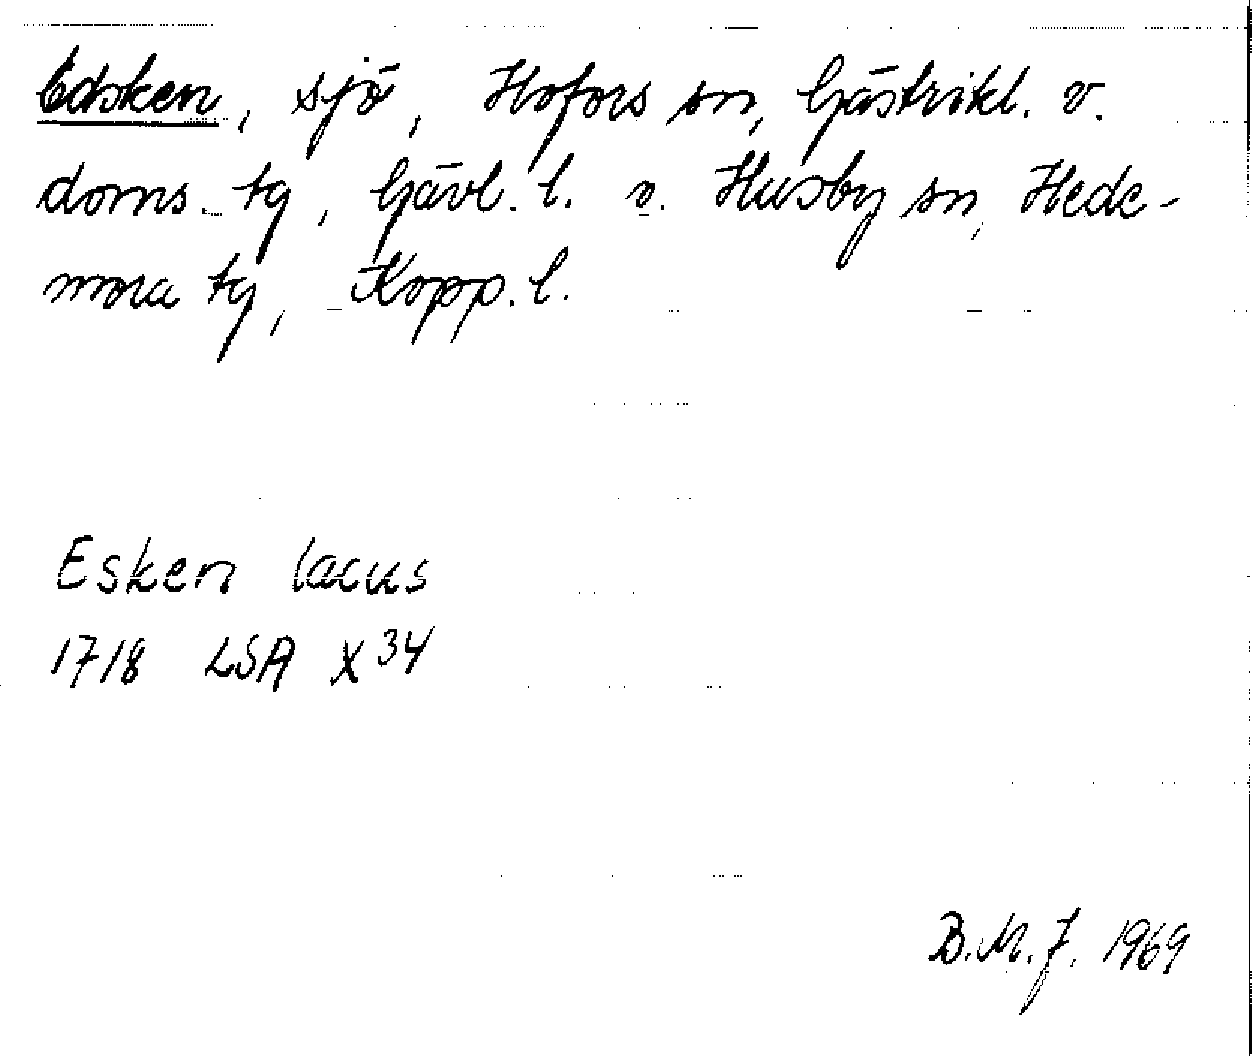 Edsken, sjö, Hofors sn, Gästrikl. v.
doms. tg, Gävl. l. o. Husby sn, Hede-
mora tg, Kopp. l.
Esken lacus
1718 LSA X 34
B.M.J. 1969